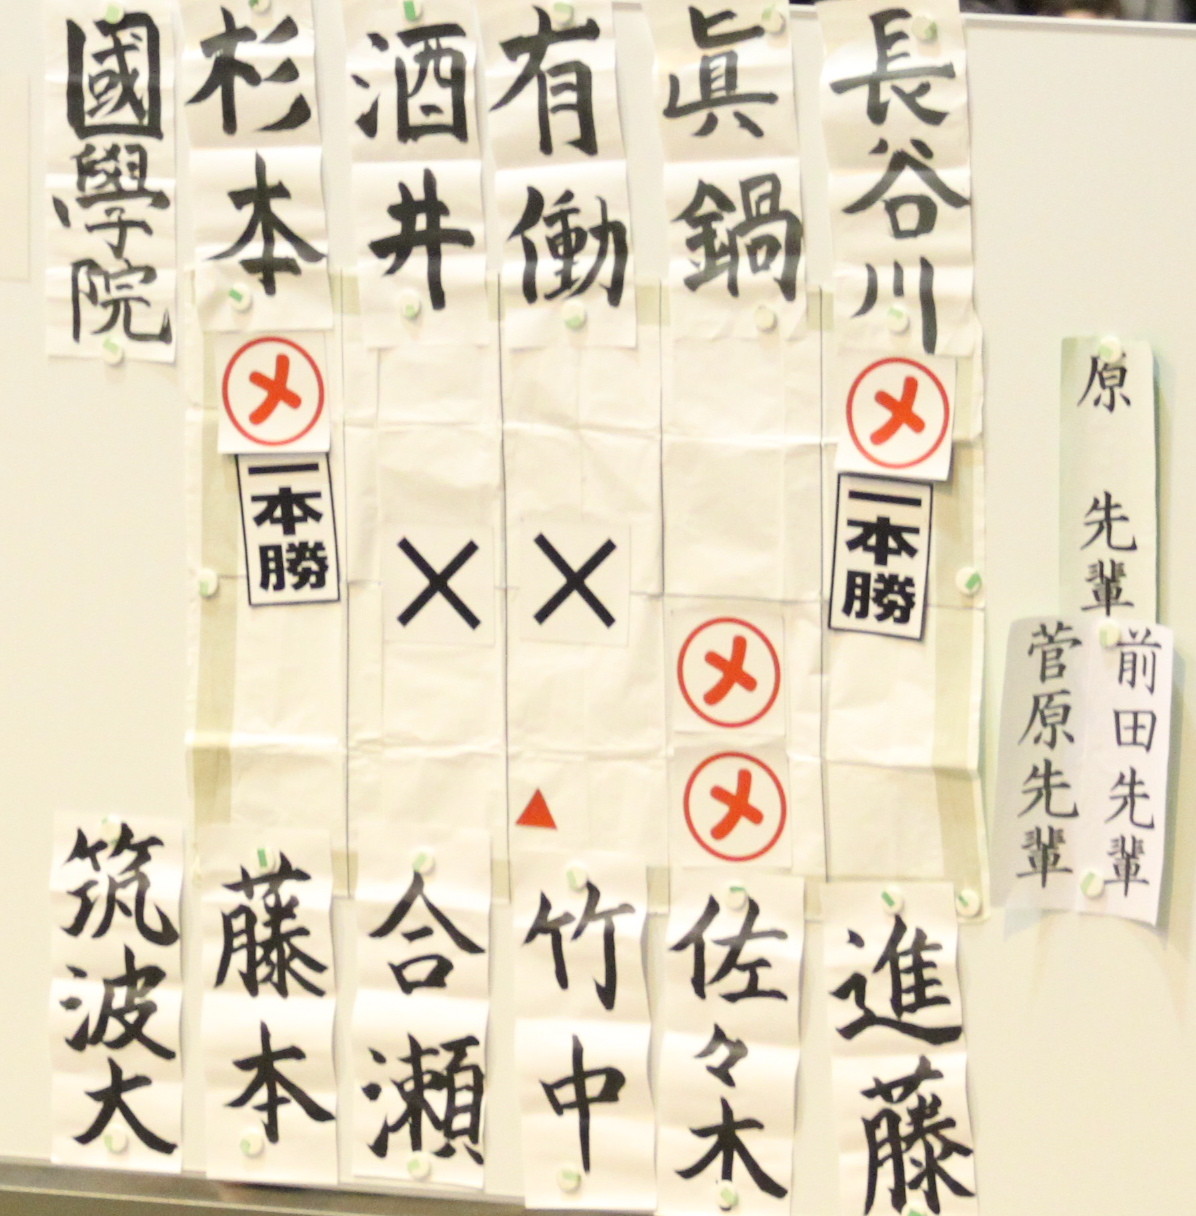 長谷川
眞鍋
有働
酒井
杉本
國學院
メ
一本勝
メ
一本勝
メ
メ
進藤
佐々木
竹中
合瀬
藤本
筑波大
原 先輩
前田先輩
菅原先輩